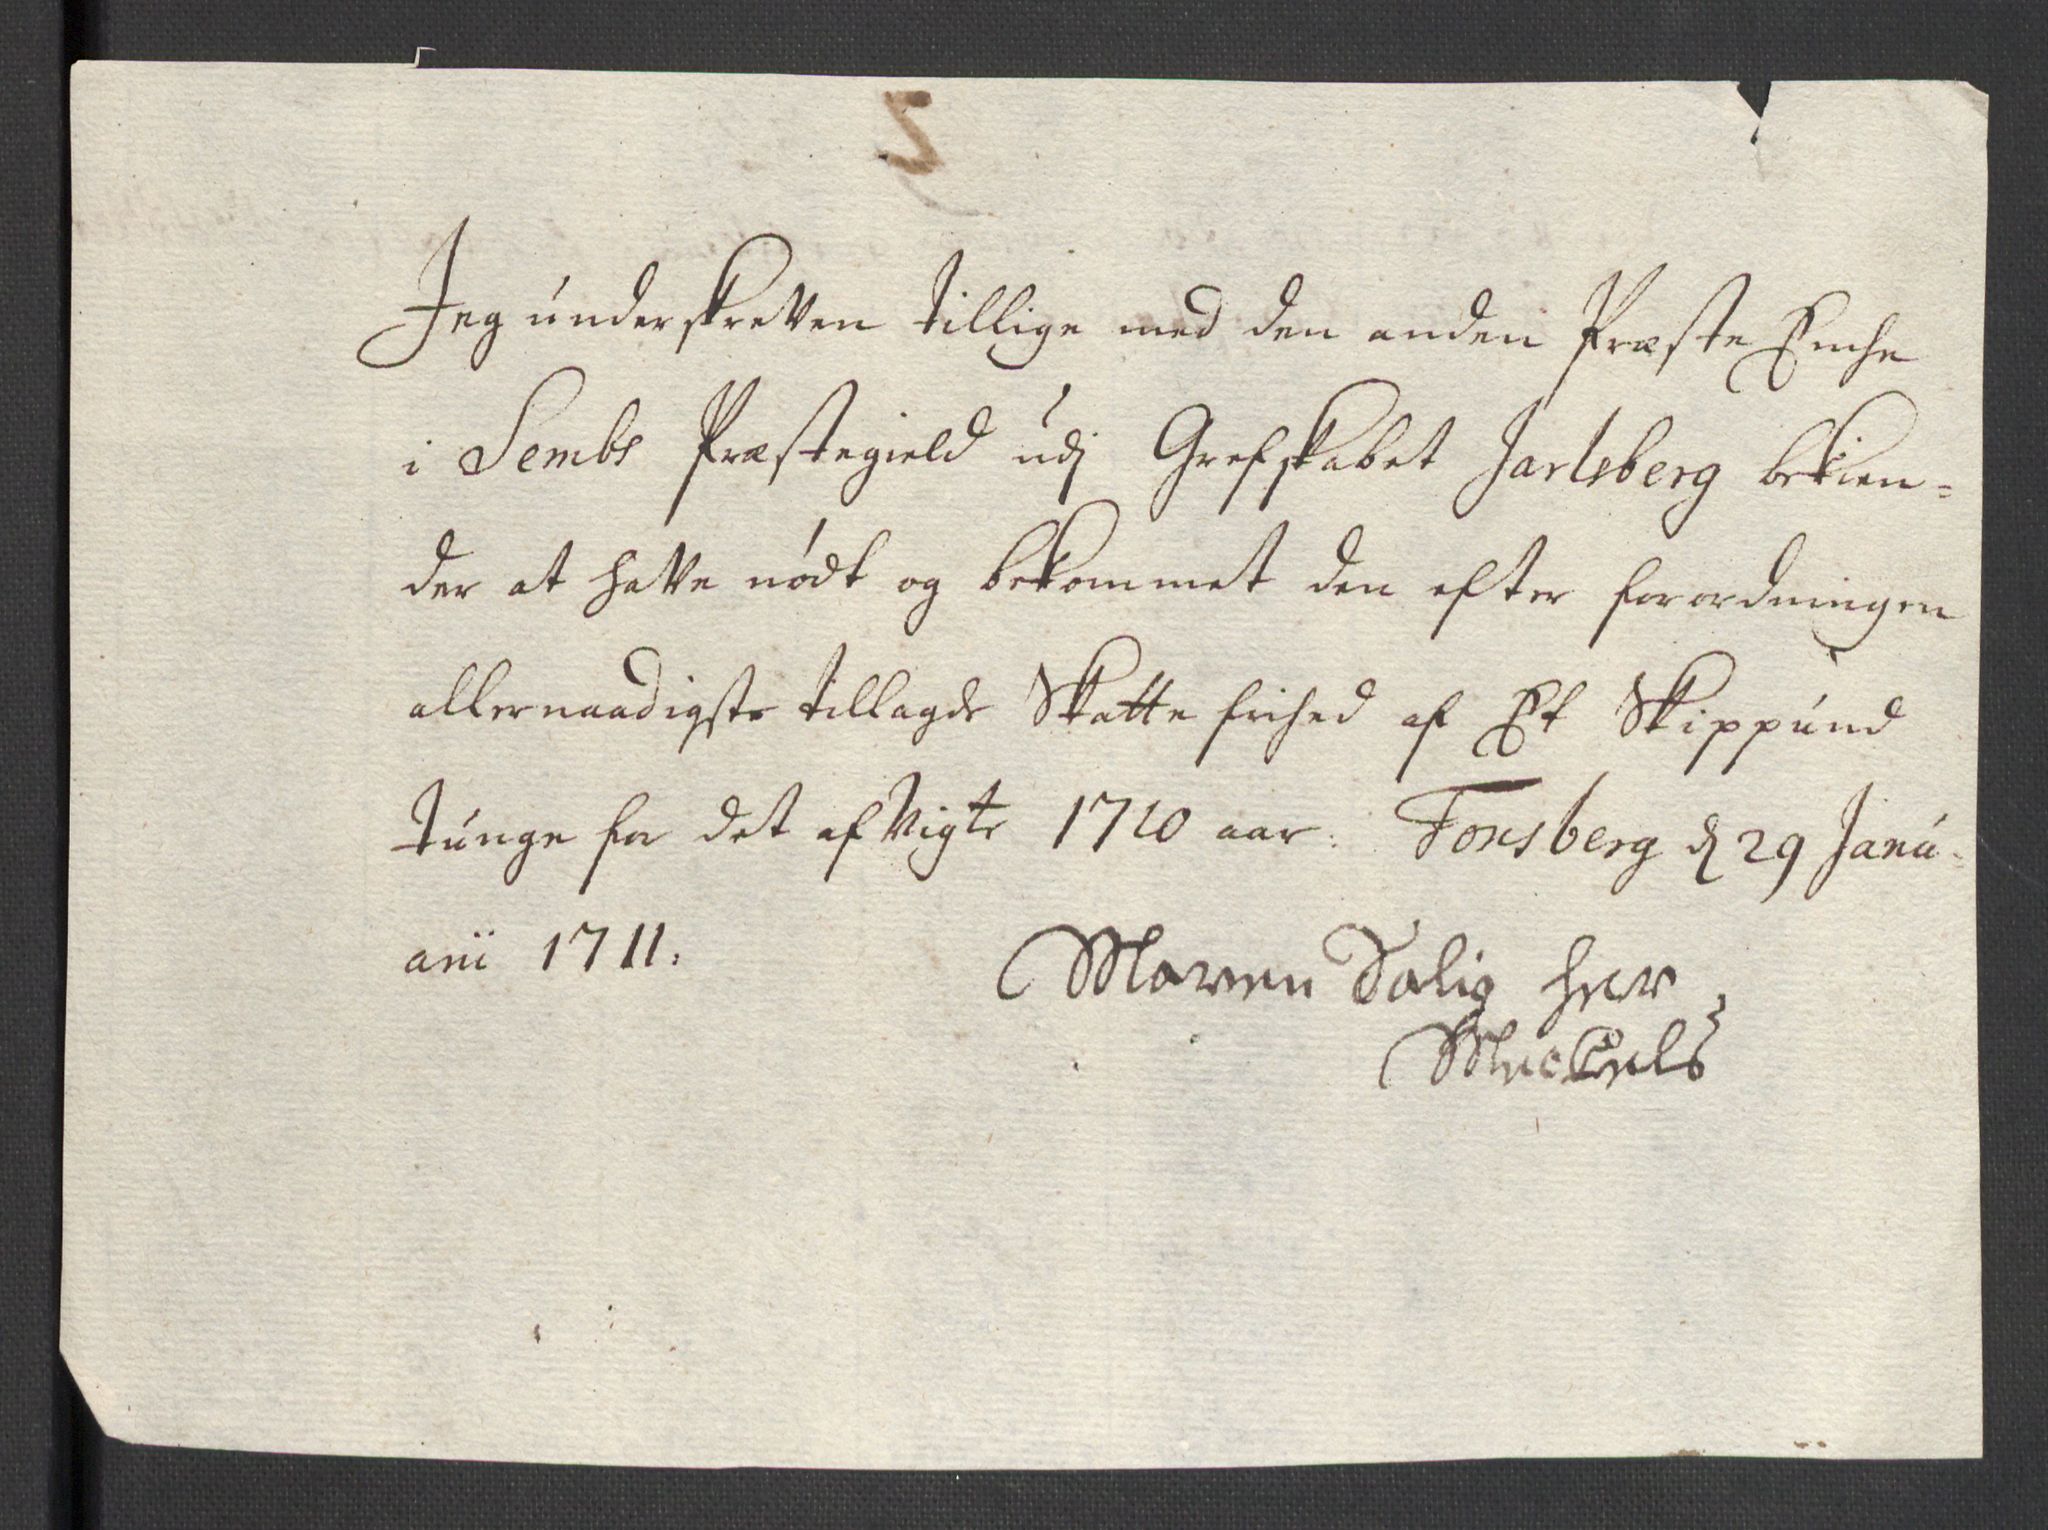 5
Jeg underskreven tillige med den anden Præste Enche
i Sembs Præstegield udj Grefskabet Jarlsberg bekien=
der at hafve nødt og bekommet den efter forordningen
allernaadigste tillagde Skatte frihed af Et Skippund
tunge for det afvigte 1710 aar. Tonsberg d 29 Janu-
arii 1711.
Maren Salig her